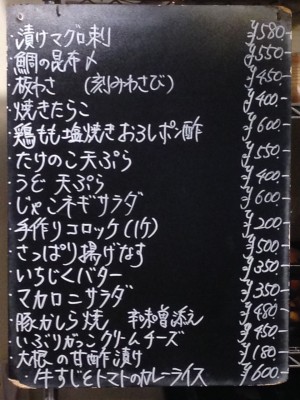 ・漬けマグロ刺 ¥580
・鯛の昆布〆 ¥550
・板わさ (刻みわさび) ¥450
・焼きたらこ ¥400
・鶏もも塩焼きおろしポン酢 ¥600
・たけのこ天ぷら ¥550
・うど天ぷら ¥400
・じゃこネギサラダ ¥600
・手作りコロッケ(1ケ) ¥200
・さっぱり揚げなす ¥500
・いちじくバター ¥350
・マカロニサラダ ¥350
・豚かしら焼 辛味噌添え ¥480
・いぶりがっこクリームチーズ ¥450
・大根の甘酢漬け ¥180
・牛すじとトマトのカレーライス ¥600